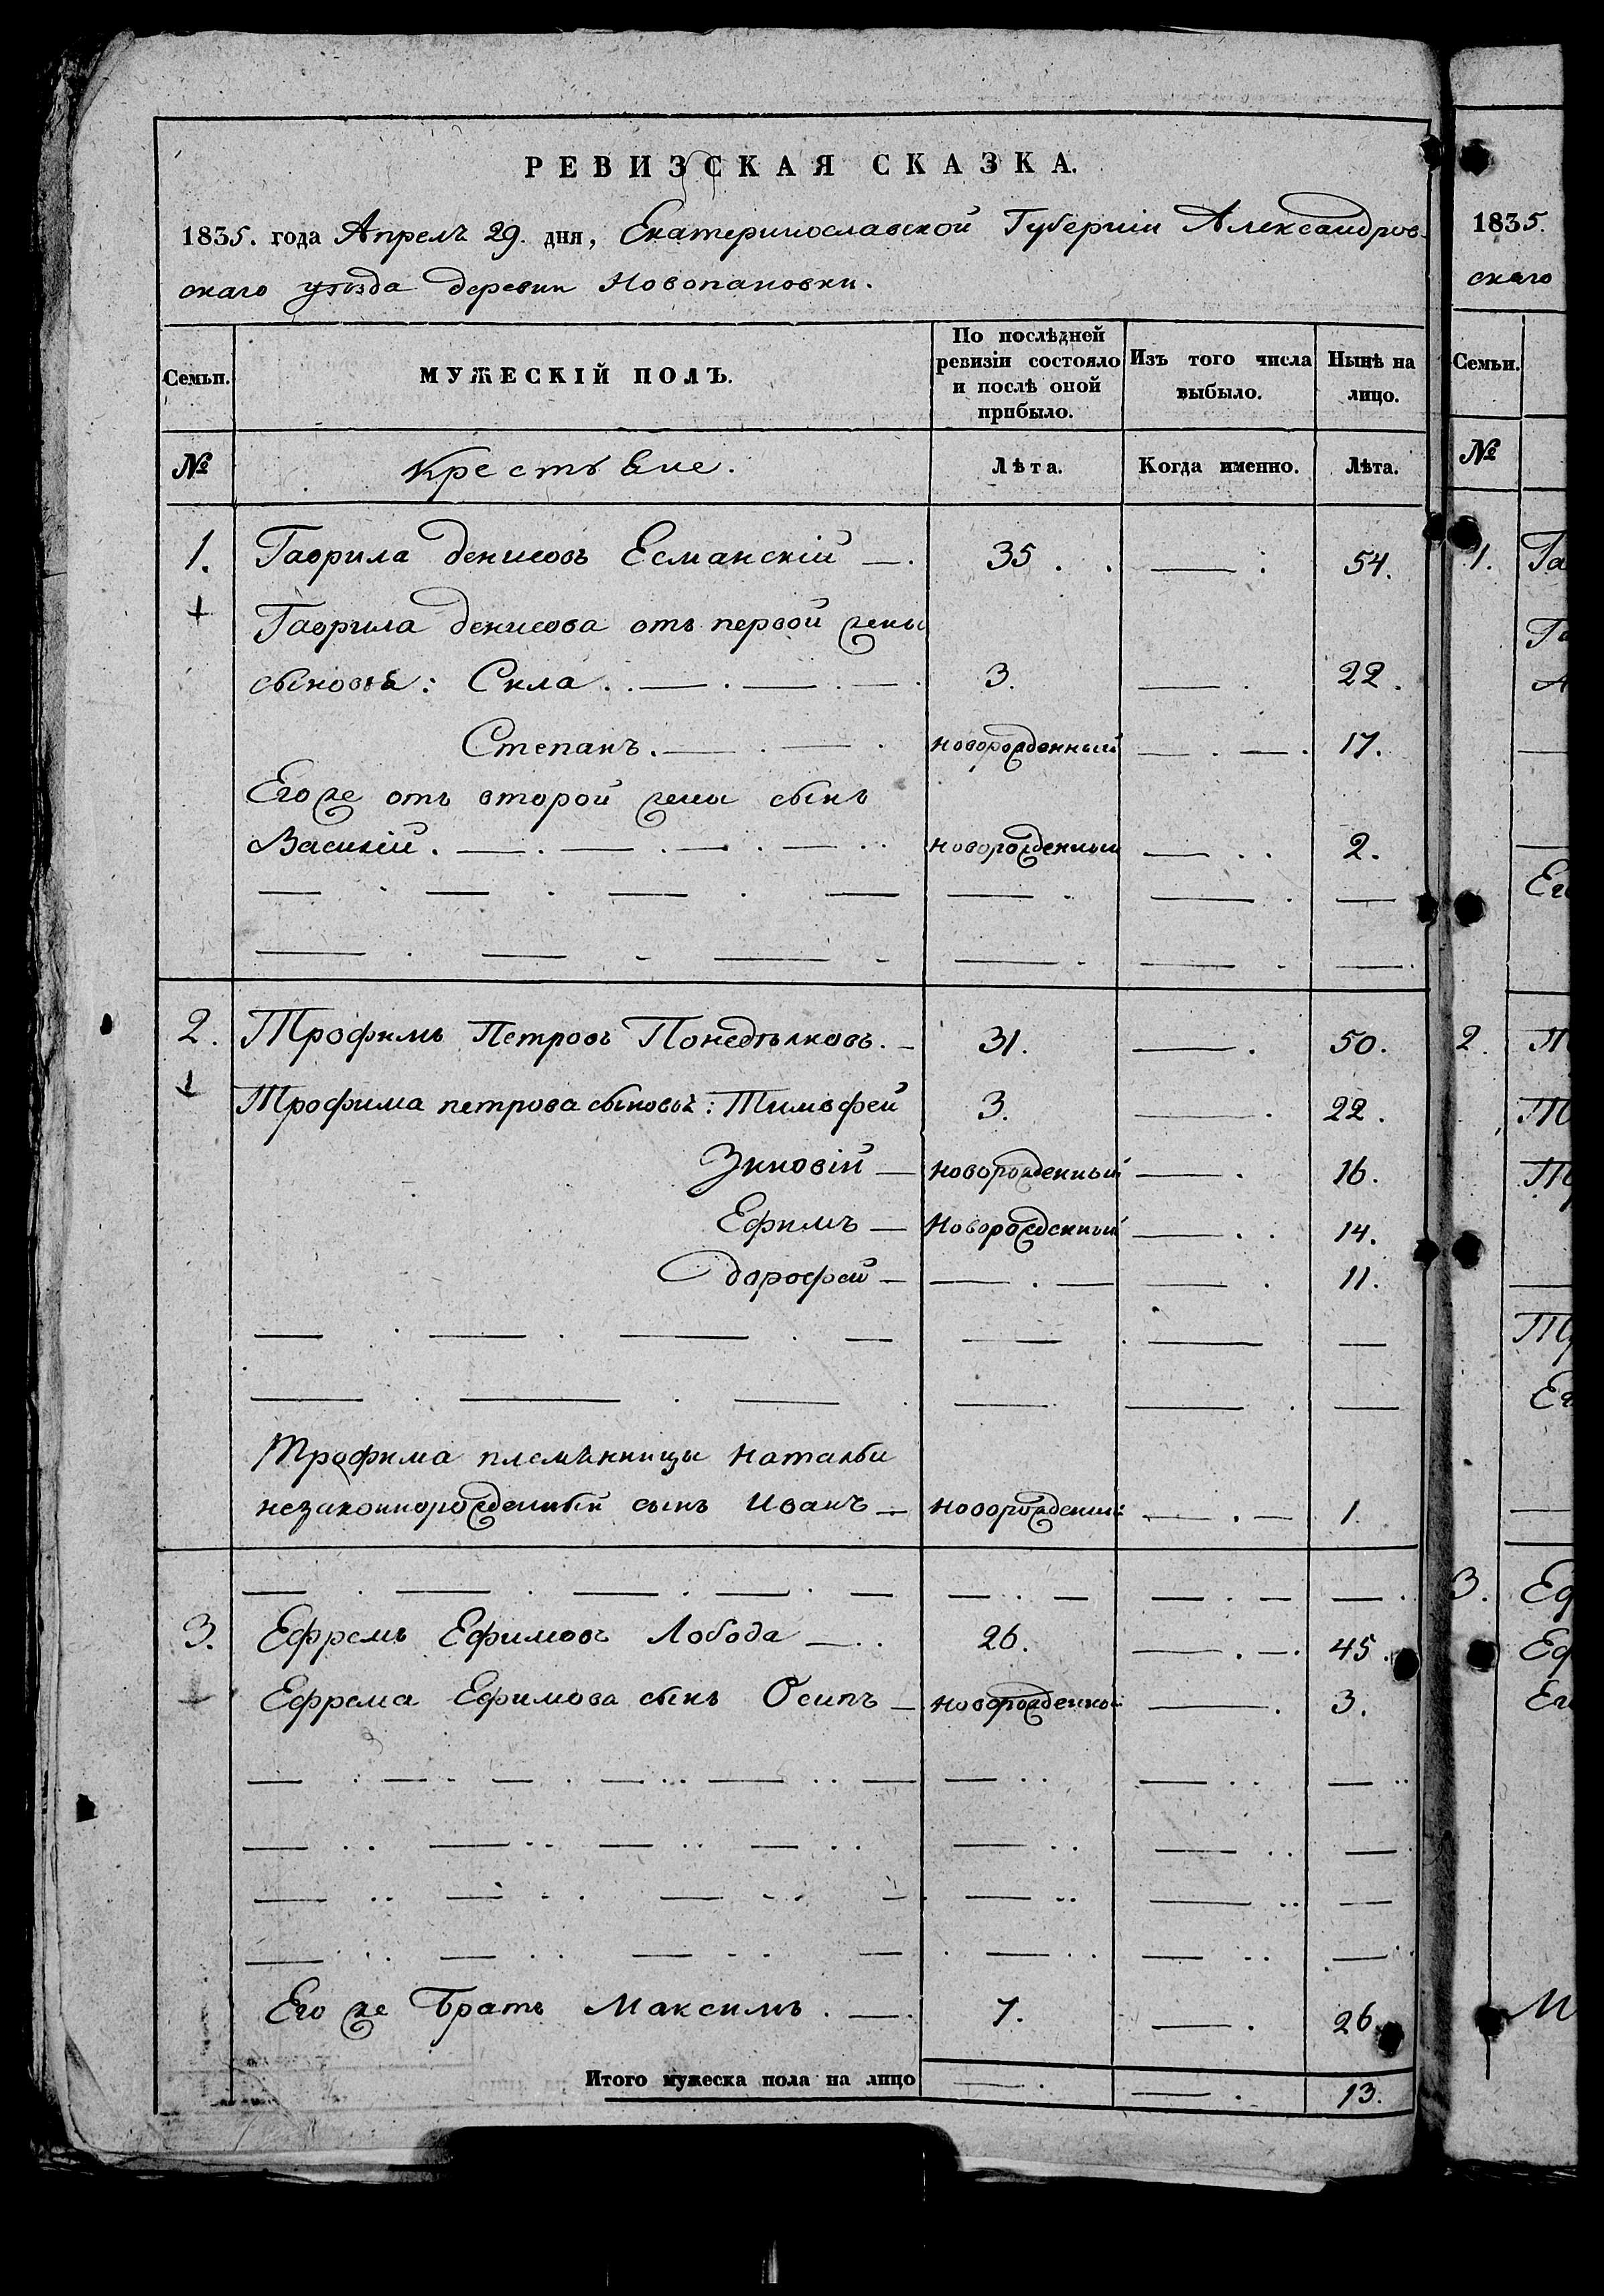 РЕВИЗСКАЯ СКАЗКА.
1835. года Апрель 29. дня, Екатеринославской Губерніи Александров-
скаго уѣзда деревни Новопановки.
Семьи.
МУЖЕСКІЙ ПОЛЪ.
По послѣдней ревизіи состояло и послѣ оной прибыло.
Изъ того числа выбыло.
Нынѣ на лицо.
№ Крестьяне. Лѣта. Когда именно. Лѣта.
1. Гаврила Денисовъ Есманскій —. 35. . — : 54.
Гаврила Денисова отъ первой жены
сыновья: Сила. . — . — . — . 3. — . 22.
Степанъ. — . — . новорожденный — . — . 17.
Его же отъ второй жены сынъ
Василій. — . — . — . — . . новорожденный — . . 2.
2. Трофимъ Петровъ Понедѣлковъ. — 31. — . 50.
Трофима Петрова сыновья: Тимофей 3. — . 22.
Зиновій — новорожденный — . 16.
Ефимъ — Новорожденный — . . 14.
Дорофей — — . — — . 11.
Трофима племѣнницы Натальи
незаконнорожденный сынъ Иванъ — новорожденный — . — 1.
3. Ефремъ Ефимовъ Лобода — . . 26. — . — . 45.
Ефрема Ефимова сынъ Осипъ — новорожденной — . 3.
Его же Братъ Максимъ. — . 7. — . 26.
Итого мужеска пола на лицо — . — . 13.
1835.
скаго
Семьи.
№
1. Га
Га
Ег
2.
3. Еф
Еф
Ег
М